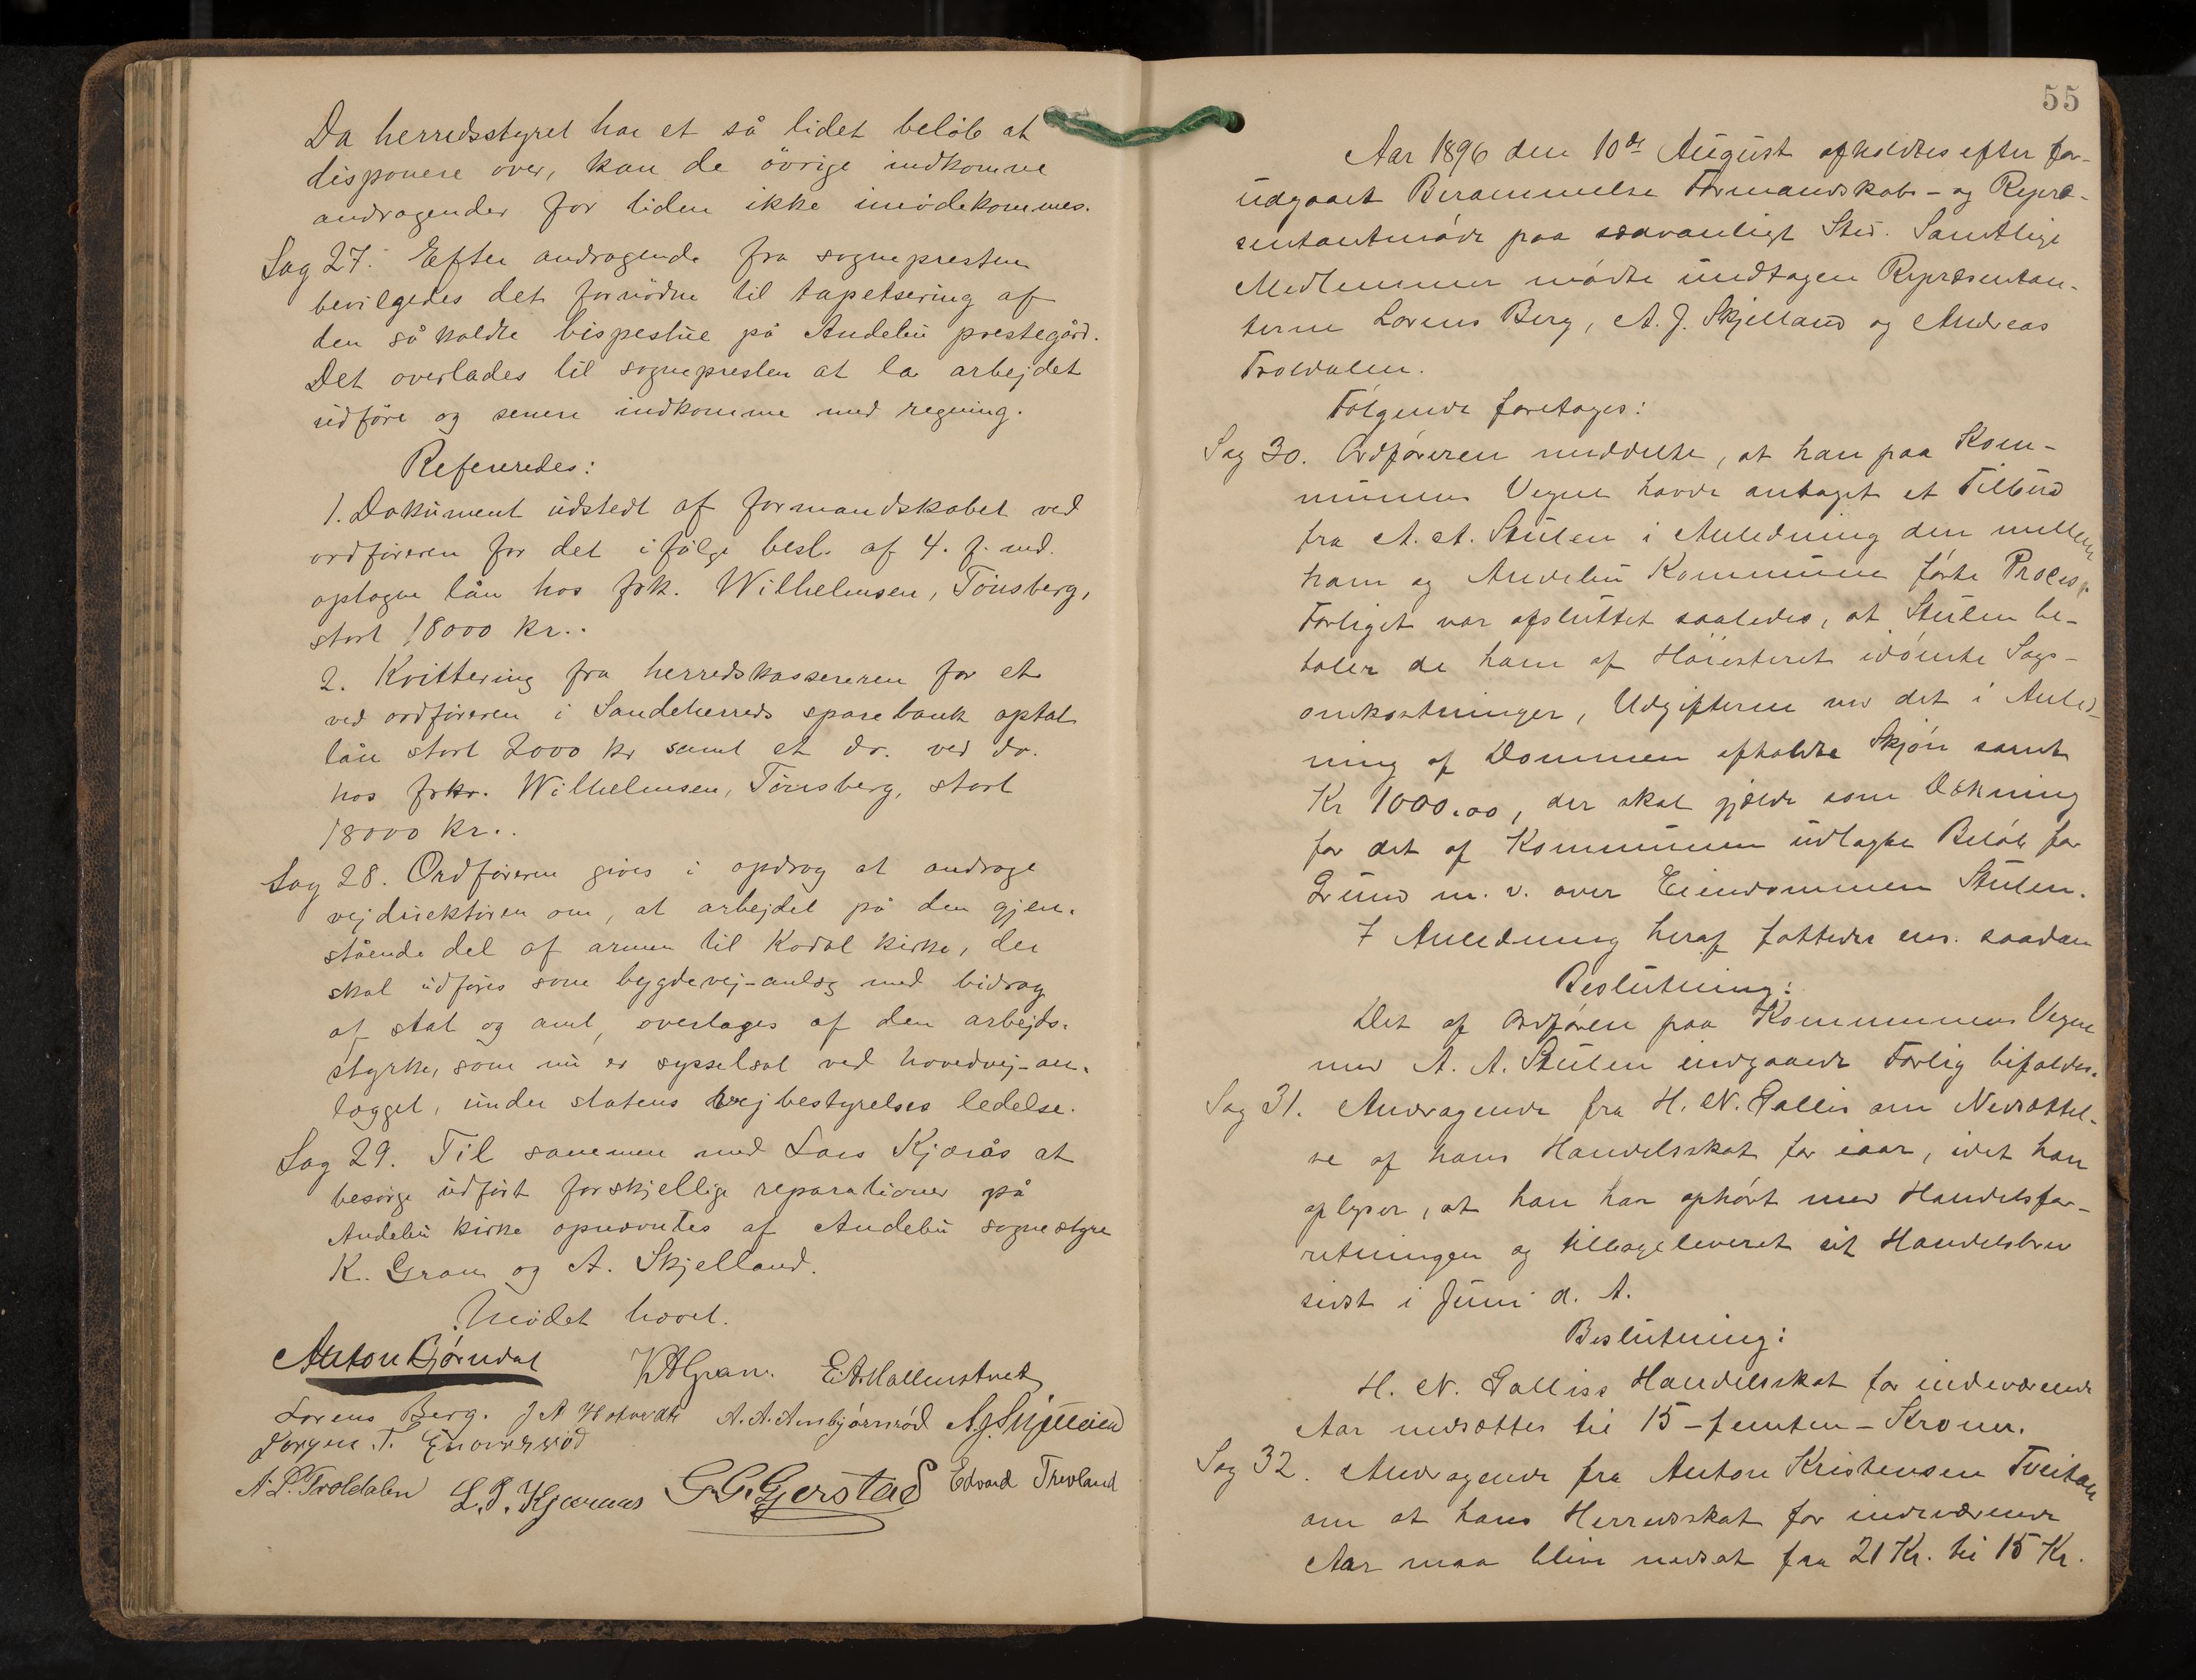 Da herredsstyret har et så lidet beløb at
disponere over, kan de øvrige indkomne
andragender for tiden ikke imødekommes.
Sag 27. Efter andragende fra sognepresten
bevilgedes det fornødne til tapetsering af
den så kaldte bispestue på Andebu prestegård.
Det overlades til sognepresten at la arbejdet
udføre og senere indkomme med regning.
Refereredes:
1. Dokument udstedt af formandskabet ved
ordføreren for det ifølge besl. af 4. f. md.
optagne lån hos frk. Wilhelmsen, Tønsberg,
stort 18000 kr..
2. Kvittering fra herredskassereren for et
ved ordføreren i Sandeherreds sparebank optat
lån stort 2000 kr samt et do. ved do.
hos frkr. Wilhelmsen, Tønsberg, stort
18000 kr..
Sag 28. Ordføreren gives i opdrag at andrage
vejdirektøren om, at arbejdet på den gjen-
stående del af armen til Kodal kirke, der
skal udføres som bygdevej-anlæg med bidrag
af stat og amt, overtages af den arbejds-
styrke, som nu er sysselsat ved hovedvej-an-
lægget, under statens vejbestyrelses ledelse.
Sag 29. Til sammen med Lars Kjærås at
besørge udført forskjellige reparationer på
Andebu kirke opnævntes af Andebu sognestyre
K. Gran og A. Skjelland.
Mødet hævet.
Anton Bjørndal K A Gran. E. A. Mallenstvet
Lorens Berg. J A A. A. Arnbjørnrød A. J. Skjelland
Jørgen T.
A. P. Troldalen L. P. Kjæraas G. G. Gjerstad Edvard Trevland
55
Aar 1896 den 10de August afholdtes efter for-
udgaaet Berammelse Formandskabs- og Repræ-
sentantmøde paa sædvanligt Sted. Samtlige
Medlemmer mødte undtagen Repræsentan-
terne Lorens Berg, A. J. Skjelland og Andreas
Troldalen.
Følgende foretages:
Sag 30. Ordføreren meddelte, at han paa Kom-
munens Vegne havde antaget et Tilbud
fra A. A. Stulen i Anledning den mellem
ham og Andebu Kommune førte Proces.
Forliget var afsluttet saaledes, at Stulen be-
taler de ham af Høiesteret idømte Sags-
omkostninger, Udgifterne ved det i Anled-
ning af Dommen afholdte Skjøn samt
Kr 1000.00, der skal gjælde som Dækning
for det af Kommunen udlagte Beløb for
Grund m. v. over Eiendommen Stulen.
I Anledning heraf fattedes ens. saadan
Beslutning:
Det af Ordføren paa Kommunens Vegne
med A. A. Stulen indgaaede Forlig bifaldes.
Sag 31. Andragende fra H. N. Gallis om Nedsættel-
se af hans Handelsskat for iaar, idet han
oplyser, at han har ophørt med Handelsfor-
retningen og tilbageleveret sit Handelsbrev
sidst i Juni d. A.
Beslutning:
H. N. Galliss Handelsskat for indeværende
Aar nedsættes til 15 - femten - Kroner.
Sag 32. Andragende fra Anton Kristensen Tveitan
om at hans Herredsskat for indeværende
Aar maa blive nedsat fra 21 Kr. til 15 Kr.